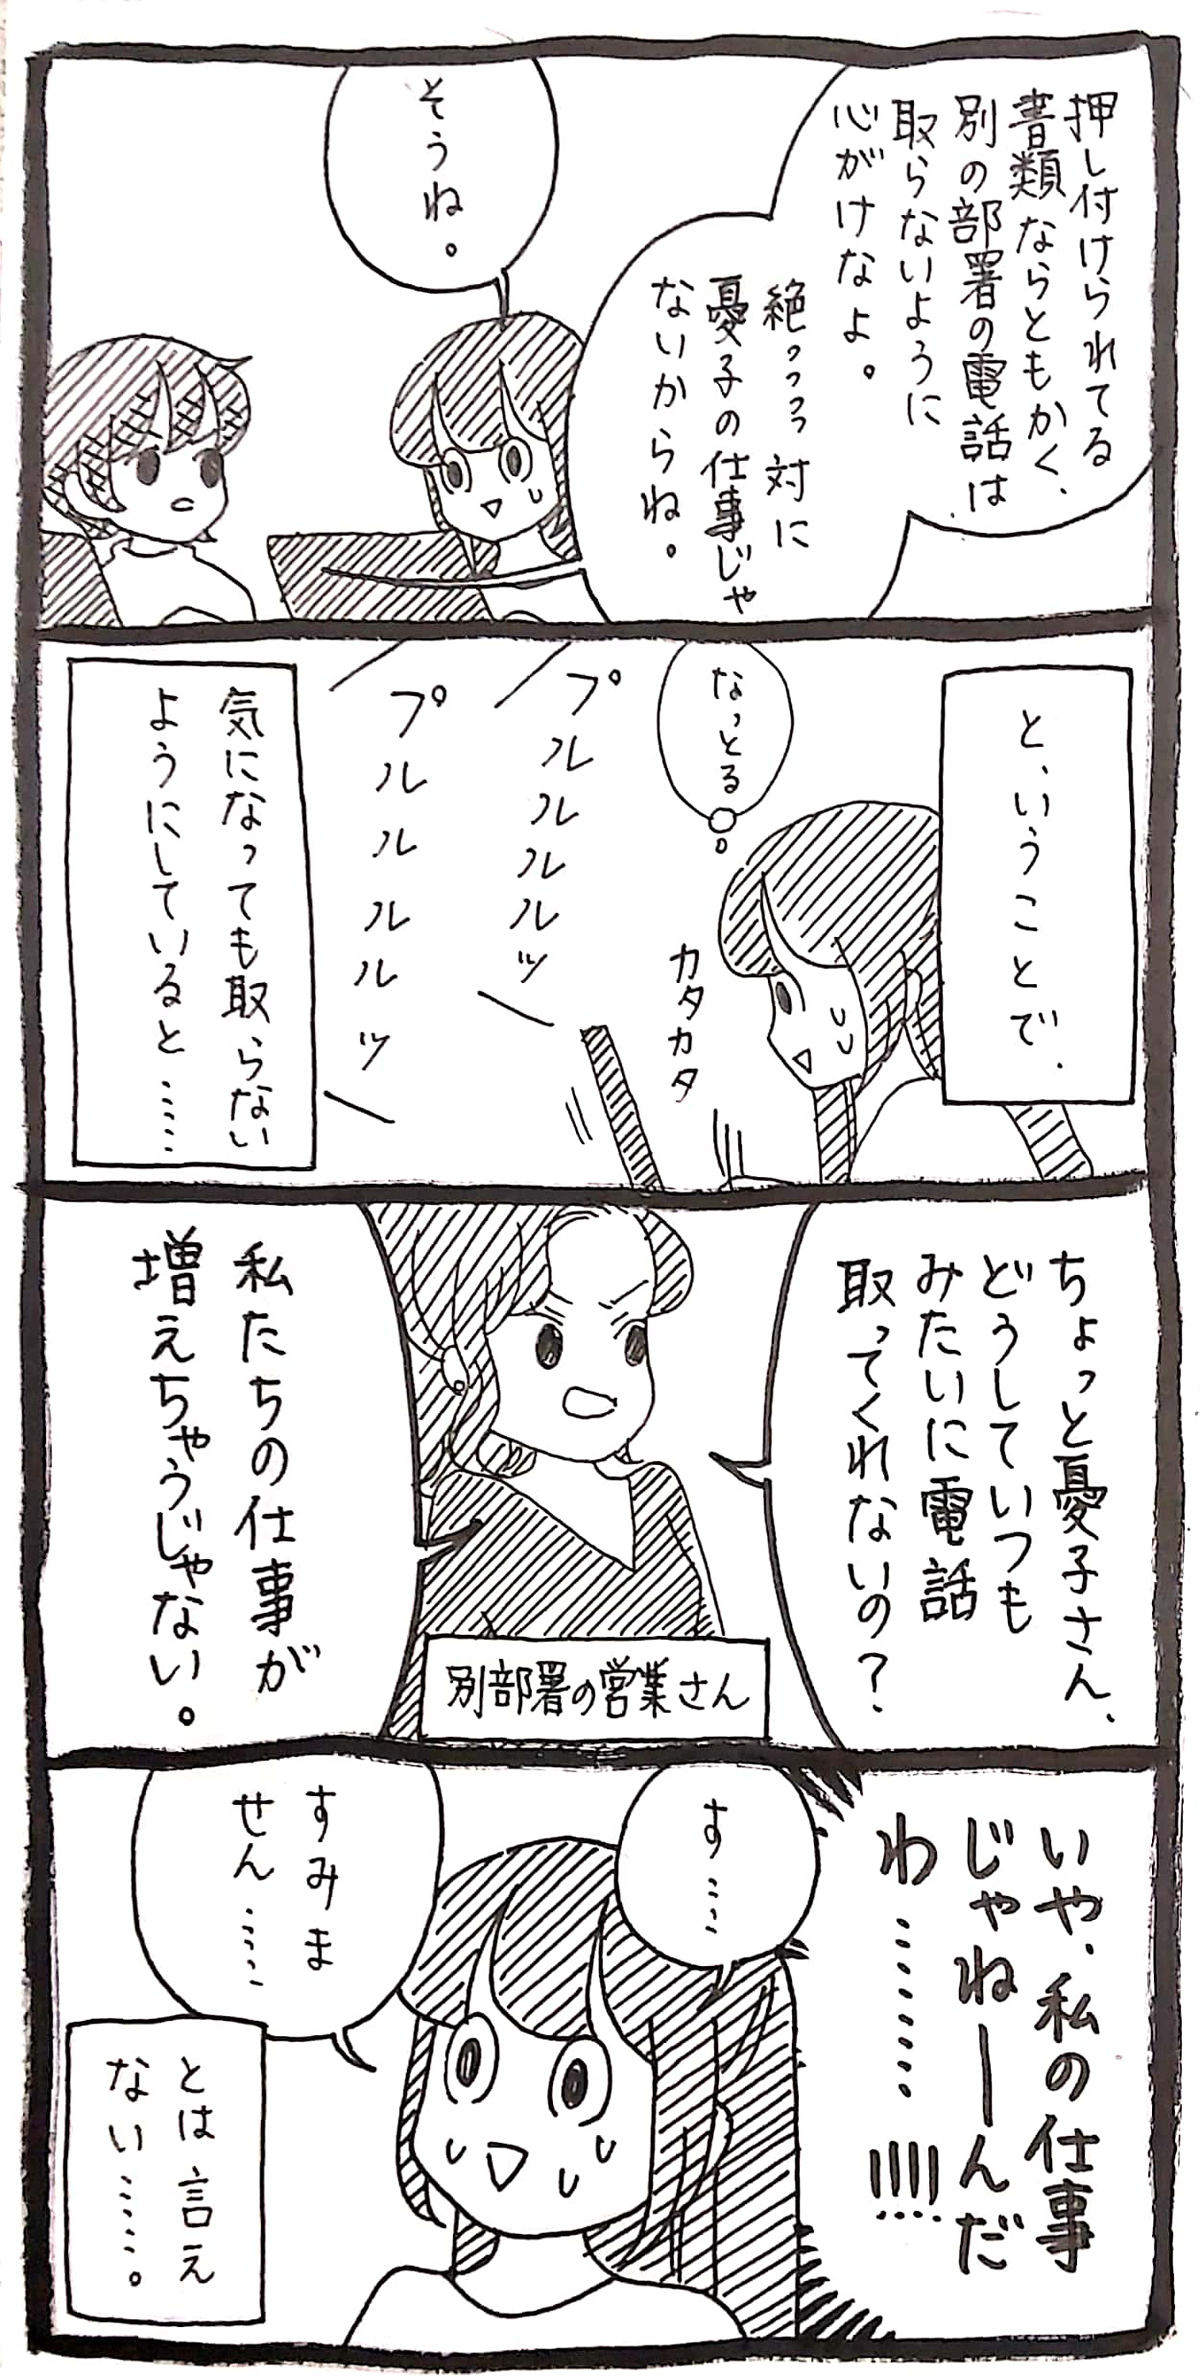 押し付けられてる
書類ならともかく、
別の部署の電話は
取らないように
心がけなよ。
絶っっっ対に
憂子の仕事じゃ
ないからね。
そうね。
と、いうことで、
なっとる
カタカタ
プルルルルッ
プルルルルッ
気になっても取らない
ようにしていると……
ちょっと憂子さん、
どうしていつも
みたいに電話
取ってくれないの？
私たちの仕事が
増えちゃうじゃない。
別部署の営業さん
いや、私の仕事
じゃねーんだ
わ………!!!!
す……
すみま
せん……
とは言え
ない……。